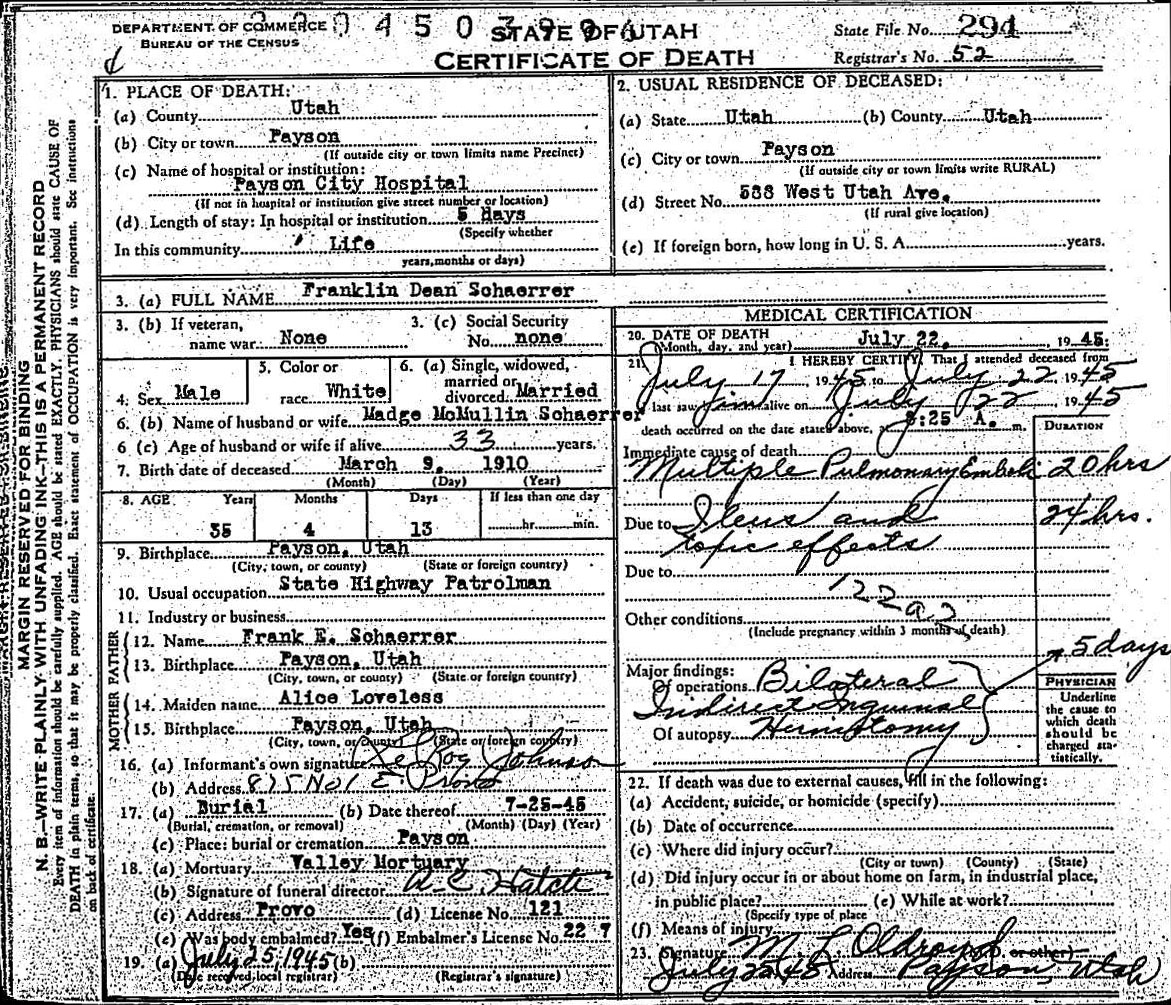 DEPARTMENT OF COMMERCE
BUREAU OF THE CENSUS
STATE OF UTAH
CERTIFICATE OF DEATH
State File No. 294
Registrar's No. 52
MARGIN RESERVED FOR BINDING
N. B.—WRITE PLAINLY WITH UNFADING INK—THIS IS A PERMANENT RECORD
Every item of information should be carefully supplied. AGE should be stated EXACTLY. PHYSICIANS should state CAUSE OF
DEATH in plain terms, so that it may be properly classified. Exact statement of OCCUPATION is very important. See instructions
on back of certificate.
1. PLACE OF DEATH:
(a) County Utah
(b) City or town Payson
(If outside city or town limits name Precinct)
(c) Name of hospital or institution:
Payson City Hospital
(If not in hospital or institution give street number or location)
(d) Length of stay: In hospital or institution 5 Hays
(Specify whether
In this community Life
years, months or days)
2. USUAL RESIDENCE OF DECEASED:
(a) State Utah (b) County Utah
(c) City or town Payson
(If outside city or town limits write RURAL)
(d) Street No. West Utah Ave.
(If rural give location)
(e) If foreign born, how long in U. S. A. years.
3. (a) FULL NAME Franklin Dean Schaerrer
3. (b) If veteran, name war None
3. (c) Social Security No. none
4. Sex Male
5. Color or race White
6. (a) Single, widowed, married or divorced. Married
6. (b) Name of husband or wife Madge McMullin Schaerrer
6 (c) Age of husband or wife if alive 33 years.
7. Birth date of deceased March 9, 1910
(Month) (Day) (Year)
8. AGE Years Months Days If less than one day
35 4 13 hr. min.
9. Birthplace Payson, Utah
(City, town, or county) (State or foreign country)
10. Usual occupation State Highway Patrolman
11. Industry or business
FATHER
12. Name Frank E. Schaerrer
13. Birthplace Payson, Utah
(City, town, or county) (State or foreign country)
MOTHER
14. Maiden name Alice Loveless
15. Birthplace Payson, Utah
(City, town, or county) (State or foreign country)
16. (a) Informant's own signature LeRoy Johnson
(b) Address 875 No 1 E Provo
17. (a) Burial (b) Date thereof 7-25-45
(Burial, cremation, or removal) (Month) (Day) (Year)
(c) Place: burial or cremation Payson
18. (a) Mortuary Valley Mortuary
(b) Signature of funeral director
(c) Address Provo (d) License No. 121
(e) Was body embalmed? Yes (f) Embalmer's License No. 22 7
19. (a) July 25, 1945 (b)
(Date received local registrar) (Registrar's signature)
MEDICAL CERTIFICATION
20. DATE OF DEATH July 22, 1945
(Month, day, and year)
21. I HEREBY CERTIFY, That I attended deceased from
July 17 1945 to July 22 1945
last saw him alive on July 22 1945
death occurred on the date stated above, :25 A. m.
DURATION
Immediate cause of death
Multiple Pulmonary Emboli 20 hrs
Due to Ileus and 24 hrs.
topic effects
Due to
122a2
Other conditions
(Include pregnancy within 3 months of death)
Major findings: 5 days
Of operations Bilateral
Indirect Inguinal
Of autopsy Herniotomy
PHYSICIAN
Underline
the cause to
which death
should be
charged sta-
tistically.
22. If death was due to external causes, fill in the following:
(a) Accident, suicide, or homicide (specify)
(b) Date of occurrence
(c) Where did injury occur?
(City or town) (County) (State)
(d) Did injury occur in or about home on farm, in industrial place,
in public place? (e) While at work?
(Specify type of place
(f) Means of injury
23. Signature M L Oldroyd or other)
July 25 45 Address Payson, Utah